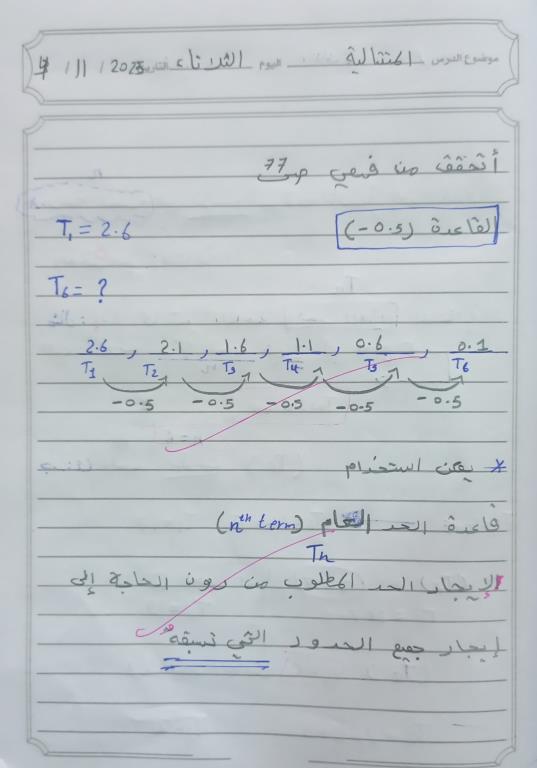 موضوع الدرس المتتالية اليوم الثلاثاء التاريخ 4 / 11 / 2025
أتحقق من فهمي ص 77
القاعدة (-0.5) T₁ = 2.6
T₆ = ?
2.6 , 2.1 , 1.6 , 1.1 , 0.6 , 0.1
T₁ T₂ T₃ T₄ T₅ T₆
-0.5 -0.5 -0.5 -0.5 -0.5
* يمكن استخدام
قاعدة الحد العام (nth term)
Tn
لإيجاد الحد المطلوب من دون الحاجة إلى
إيجاد جميع الحدود التي تسبقه